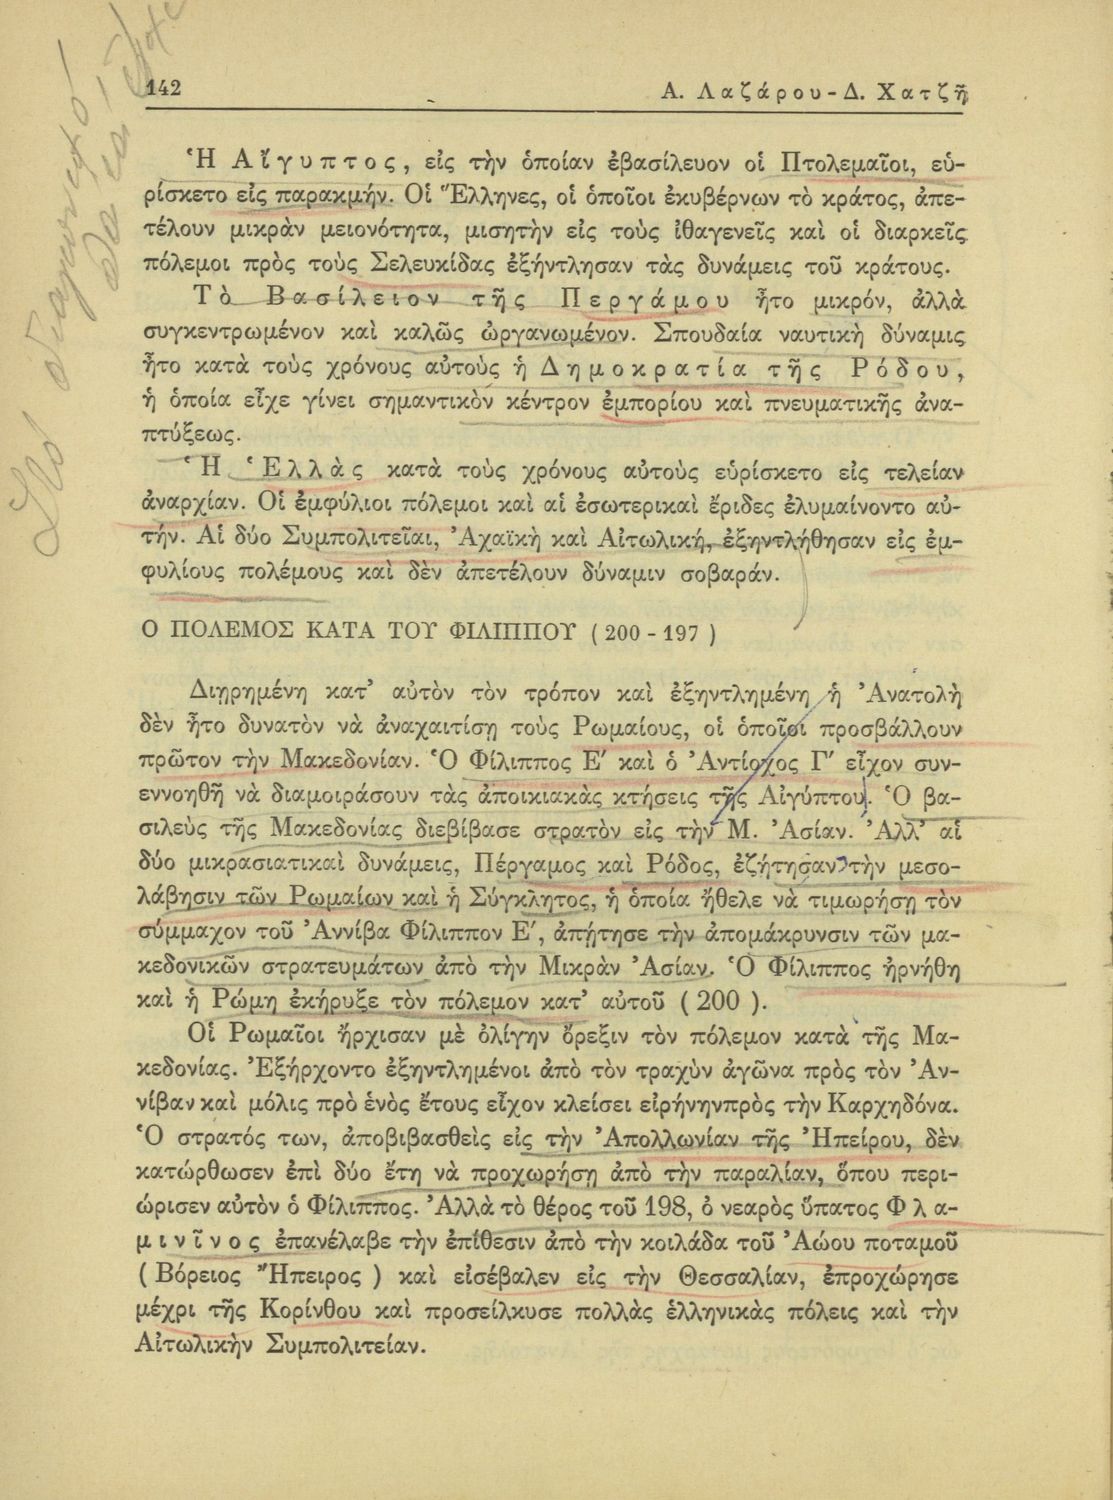 142
Α. Λαζάρου - Δ. Χατζῆ
Ἡ Αἴγυπτος, εἰς τὴν ὁποίαν ἐβασίλευον οἱ Πτολεμαῖοι, εὑ-
ρίσκετο εἰς παρακμήν. Οἱ Ἕλληνες, οἱ ὁποῖοι ἐκυβέρνων τὸ κράτος, ἀπε-
τέλουν μικρὰν μειονότητα, μισητὴν εἰς τοὺς ἰθαγενεῖς καὶ οἱ διαρκεῖς
πόλεμοι πρὸς τοὺς Σελευκίδας ἐξήντλησαν τὰς δυνάμεις τοῦ κράτους.
Τὸ Βασίλειον τῆς Περγάμου ἦτο μικρόν, ἀλλὰ
συγκεντρωμένον καὶ καλῶς ὠργανωμένον. Σπουδαία ναυτικὴ δύναμις
ἦτο κατὰ τοὺς χρόνους αὐτοὺς ἡ Δημοκρατία τῆς Ρόδου,
ἡ ὁποία εἶχε γίνει σημαντικὸν κέντρον ἐμπορίου καὶ πνευματικῆς ἀνα-
πτύξεως.
Ἡ Ἑλλὰς κατὰ τοὺς χρόνους αὐτοὺς εὑρίσκετο εἰς τελείαν
ἀναρχίαν. Οἱ ἐμφύλιοι πόλεμοι καὶ αἱ ἐσωτερικαὶ ἔριδες ἐλυμαίνοντο αὐ-
τήν. Αἱ δύο Συμπολιτεῖαι, Ἀχαϊκὴ καὶ Αἰτωλική, ἐξηντλήθησαν εἰς ἐμ-
φυλίους πολέμους καὶ δὲν ἀπετέλουν δύναμιν σοβαράν.
Ο ΠΟΛΕΜΟΣ ΚΑΤΑ ΤΟΥ ΦΙΛΙΠΠΟΥ ( 200 - 197 )
Διῃρημένη κατ’ αὐτὸν τὸν τρόπον καὶ ἐξηντλημένη ἡ Ἀνατολὴ
δὲν ἦτο δυνατὸν νὰ ἀναχαιτίσῃ τοὺς Ρωμαίους, οἱ ὁποῖοι προσβάλλουν
πρῶτον τὴν Μακεδονίαν. Ὁ Φίλιππος Ε′ καὶ ὁ Ἀντίοχος Γ′ εἶχον συν-
εννοηθῆ νὰ διαμοιράσουν τὰς ἀποικιακὰς κτήσεις τῆς Αἰγύπτου. Ὁ βα-
σιλεὺς τῆς Μακεδονίας διεβίβασε στρατὸν εἰς τὴν Μ. Ἀσίαν. Ἀλλ’ αἱ
δύο μικρασιατικαὶ δυνάμεις, Πέργαμος καὶ Ρόδος, ἐζήτησαν τὴν μεσο-
λάβησιν τῶν Ρωμαίων καὶ ἡ Σύγκλητος, ἡ ὁποία ἤθελε νὰ τιμωρήσῃ τὸν
σύμμαχον τοῦ Ἀννίβα Φίλιππον Ε′, ἀπῄτησε τὴν ἀπομάκρυνσιν τῶν μα-
κεδονικῶν στρατευμάτων ἀπὸ τὴν Μικρὰν Ἀσίαν. Ὁ Φίλιππος ἠρνήθη
καὶ ἡ Ρώμη ἐκήρυξε τὸν πόλεμον κατ’ αὐτοῦ ( 200 ).
Οἱ Ρωμαῖοι ἤρχισαν μὲ ὀλίγην ὄρεξιν τὸν πόλεμον κατὰ τῆς Μα-
κεδονίας. Ἐξήρχοντο ἐξηντλημένοι ἀπὸ τὸν τραχὺν ἀγῶνα πρὸς τὸν Ἀν-
νίβαν καὶ μόλις πρὸ ἑνὸς ἔτους εἶχον κλείσει εἰρήνηνπρὸς τὴν Καρχηδόνα.
Ὁ στρατός των, ἀποβιβασθεὶς εἰς τὴν Ἀπολλωνίαν τῆς Ἠπείρου, δὲν
κατώρθωσεν ἐπὶ δύο ἔτη νὰ προχωρήσῃ ἀπὸ τὴν παραλίαν, ὅπου περι-
ώρισεν αὐτὸν ὁ Φίλιππος. Ἀλλὰ τὸ θέρος τοῦ 198, ὁ νεαρὸς ὕπατος Φλα-
μινῖνος ἐπανέλαβε τὴν ἐπίθεσιν ἀπὸ τὴν κοιλάδα τοῦ Ἀώου ποταμοῦ
( Βόρειος Ἤπειρος ) καὶ εἰσέβαλεν εἰς τὴν Θεσσαλίαν, ἐπροχώρησε
μέχρι τῆς Κορίνθου καὶ προσείλκυσε πολλὰς ἑλληνικὰς πόλεις καὶ τὴν
Αἰτωλικὴν Συμπολιτείαν.